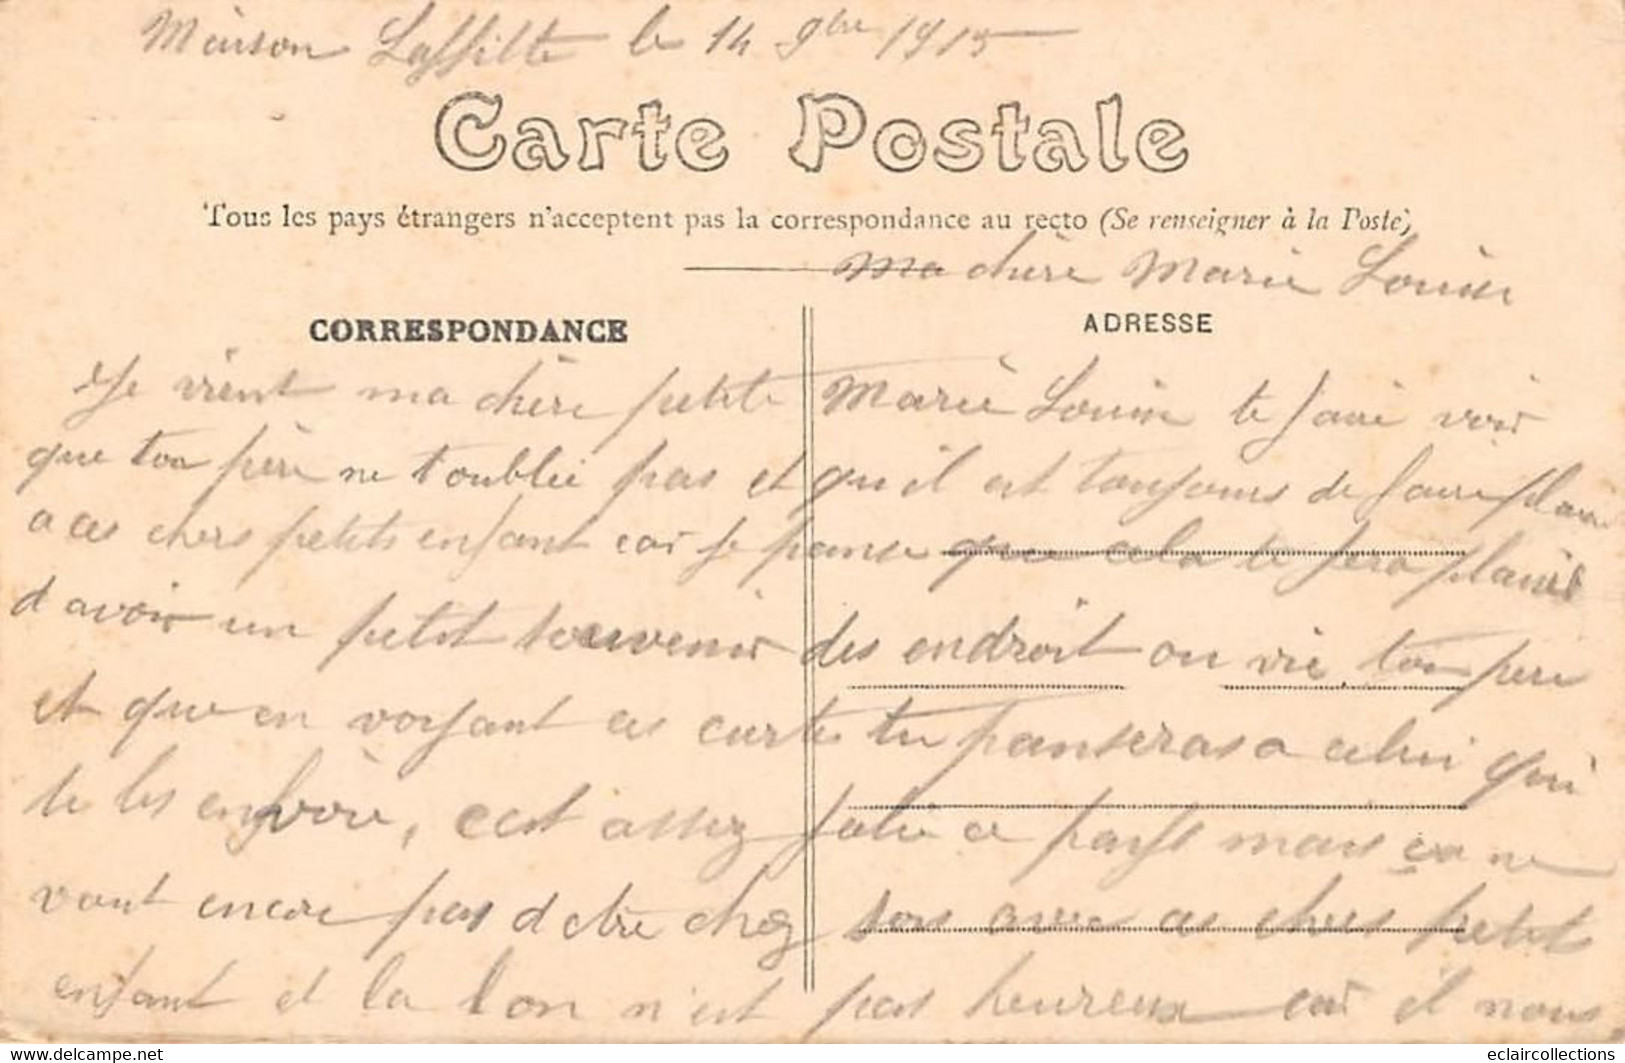 Maison Laffitte le 14 9bre 1915
Carte Postale
Tous les pays étrangers n'acceptent pas la correspondance au recto (Se renseigner à la Poste)
Ma chère Marie Louise
CORRESPONDANCE
ADRESSE
Je vient ma chère petite Marie Louise te faire voir
que ton père ne t'oublie pas et qu'il est toujours de faire plaisir
a ces chers petits enfant car je panse que cela te fera plaisir
d avoir un petit souvenir des endroit ou vie ton pere
et que en voyant ces carte tu panseras a celui qui
te les envoie, c est assez jolie ce pays mais ça ne
vaut encore pas d etre chez sois avec ces chers petits
enfant et la l on n'est pas heureux car il nous
eclaircollections
delcampe.net